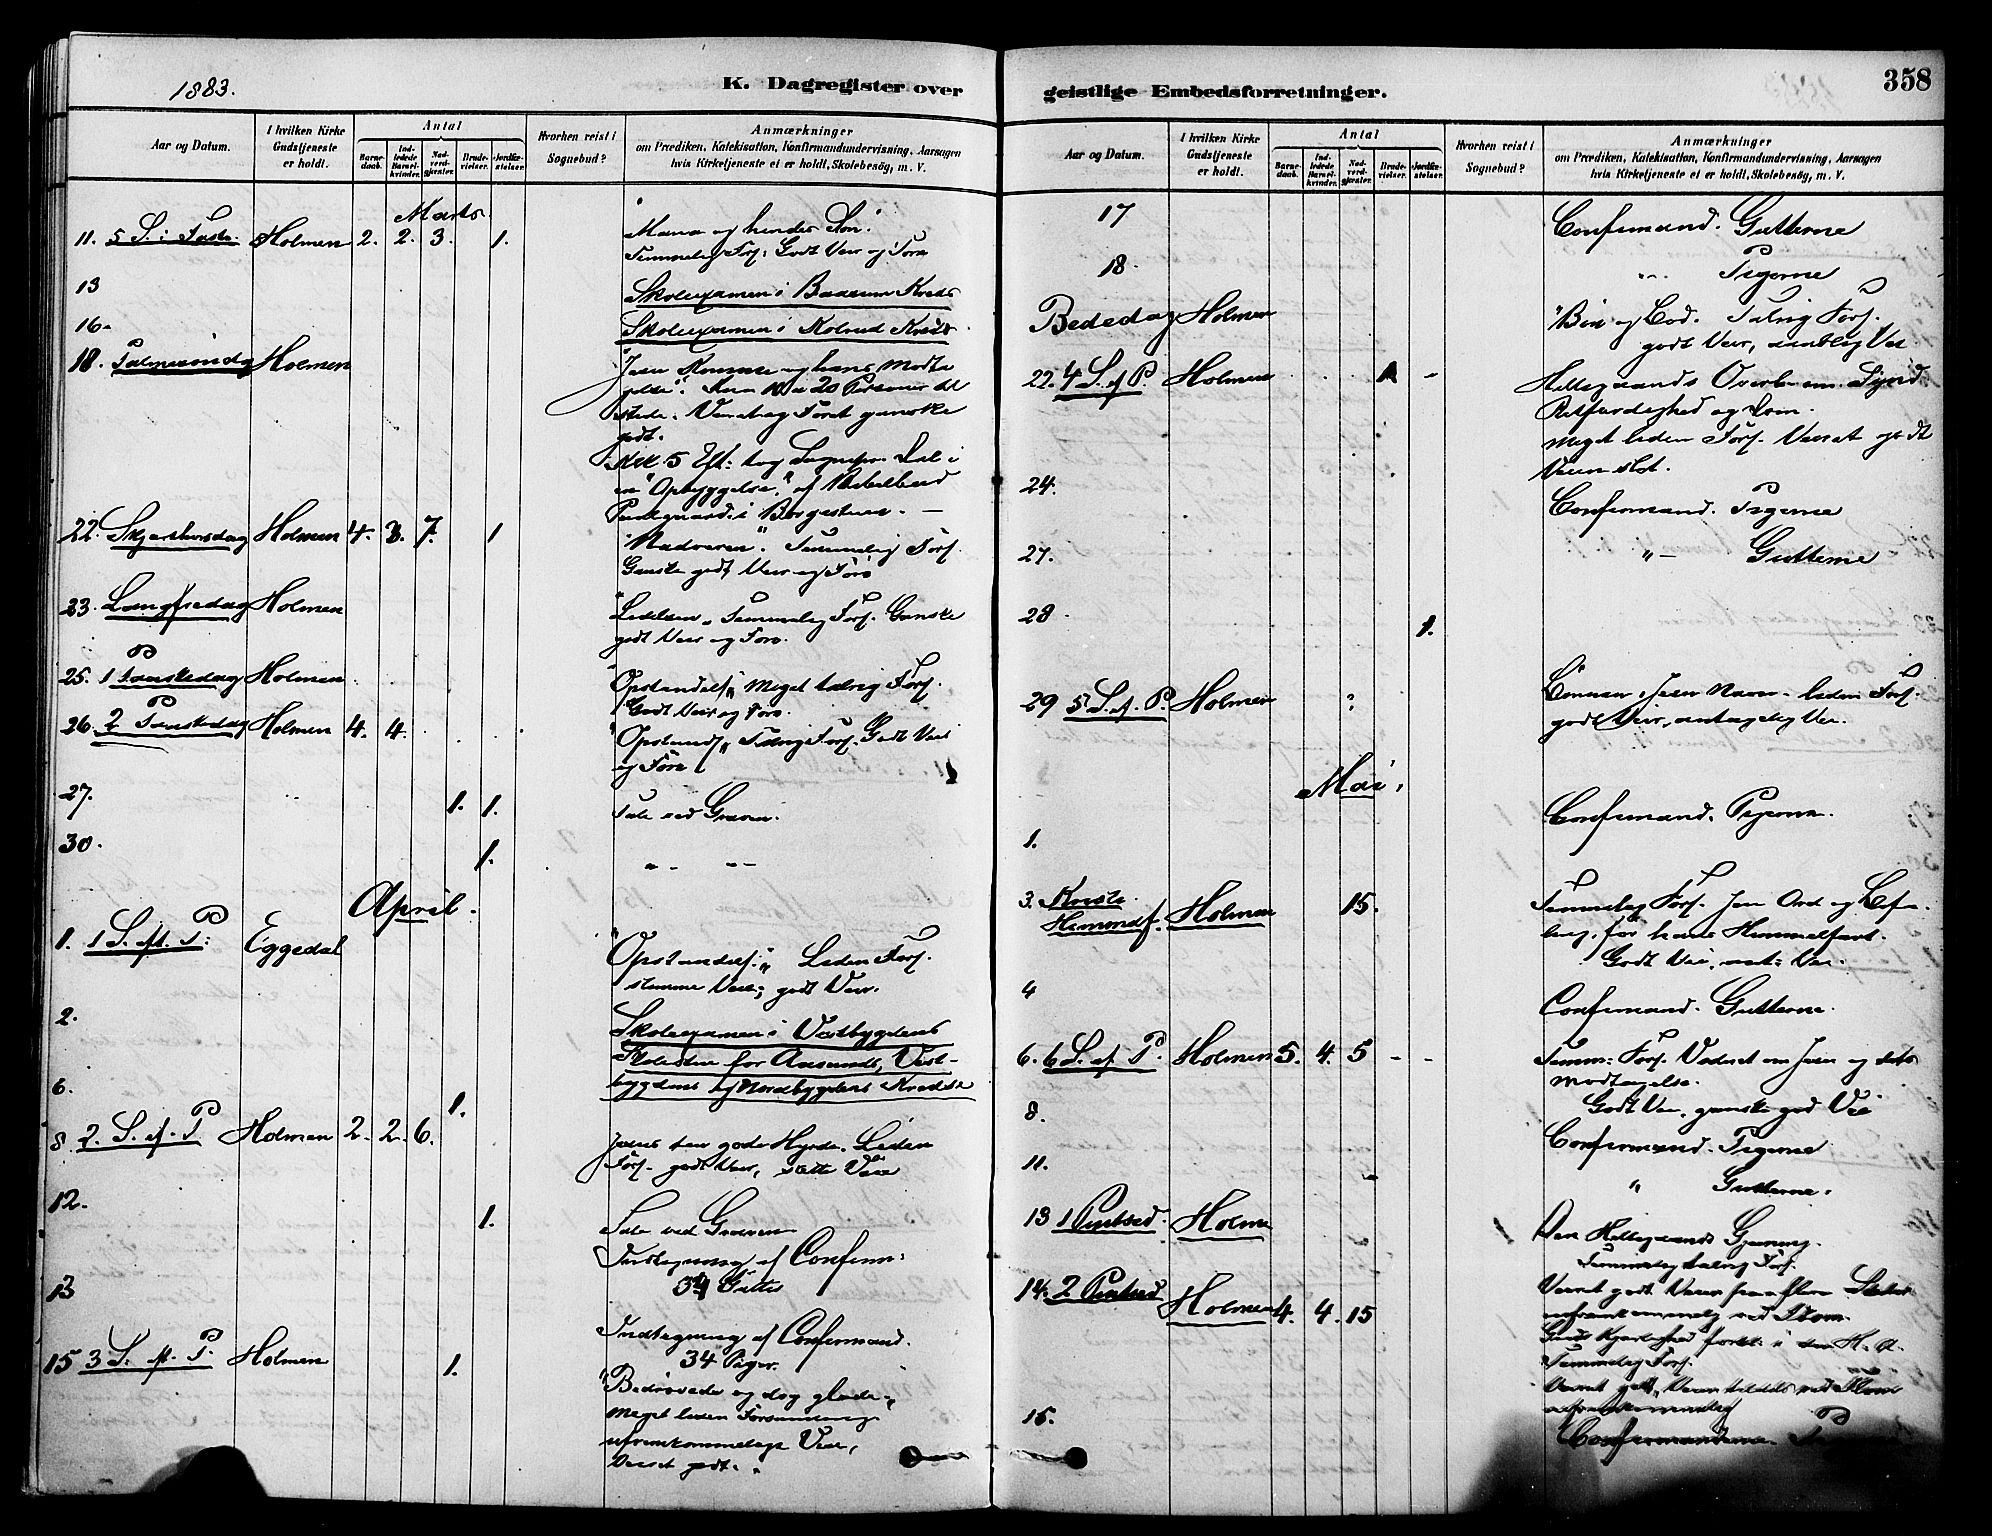 1883.
K. Dagregister over
Aar og Datum.
I hvilken Kirke Gudstjeneste er holdt.
Antal
Barnedaab.
Indledede Barselkvinder.
Nadverdgjæster.
Brudevielser.
Jordfæstelser.
Hvorhen reist i Sognebud?
Anmærkninger
om Prædiken, Katekisation, Konfirmandundervisning, Aarsagen
hvis Kirketjeneste ei er holdt, Skolebesøg, m. V.
Marts
11. 5 S. i Faste. Holmen 2. 2. 3. 1. Maria og hendes Søn.
Temmelig Fors. Godt Veir og Føre
13 Skoleexamen i Kreds
16. Skoleexamen i Kolsrud Kreds
18. Palmesøndag Holmen "Jesu Komme og hans Modta
gelse". Kun 10 a 20 Personer til
stede. Veiret og Føret ganske
godt.
Kl 5 Eft: tog
en "Opbyggelse" af
22. Skjærthorsdag Holmen 4. 3. 7. 1 "Nadveren". Temmelig Fors.
Ganske godt Veir og Føre
23. Langfredag Holmen "Lidelsen" Temmelig Fors. Ganske
godt Veir og Føre.
25. 1 Paaskedag Holmen "Opstandels" Meget talrig Fors.
Godt Veir og Føre.
26. 2 Paaskedag Holmen 4. 4. "Opstands" Talrig Fors. Godt Veir
og Føre
27. 1. 1. Tale ved Graven.
30. 1. " "
April.
1. 1 S. eft. P: Eggedal "Opstandels:" Liden Fors.
slemme Veie; godt Veir.
2. Skoleexamen i Vestbygdens
for Aasmunds, Vest-
6. bygdens og Nordbygdens Kredse
1.
8. 2. S. ef. P Holmen 2. 2. 6. Jesus den gode Hyrde. Liden
Fors. godt Veir, slette Veie
12. 1. Tale ved Graven
Indtegning af Confirm:
34 Gutter
13 Indtegning af Confirmand.
34 Piger.
15 3 S. eft. P. Holmen 1. "Bedrøvede og dog glade"
Meget liden Forsamling
ufremkommelige Veie,
Veiret godt.
geistlige Embedsforretninger.
358
Aar og Datum.
I hvilken Kirke Gudstjeneste er holdt.
Antal
Barnedaab.
Indledede Barselkvinder.
Nadverdgjæster.
Brudevielser.
Jordfæstelser.
Hvorhen reist i Sognebud?
Anmærkninger
om Prædiken, Katekisation, Konfirmandundervisning, Aarsagen
hvis Kirketjeneste ei er holdt, Skolebesøg, m. V.
17 Confirmand. Gutterne
18. " Pigerne
Bededag Holmen "Bøn og Bod. Talrig Fors.
godt Veir,
22. 4 S. ef P. Holmen 1 Helligaands Overb. om Synd
Retfærdighed og Dom.
Meget liden Fors. Veiret godt
Veien slet.
24. Confirmand. Pigerne
27. " Gutterne
28 1.
29 5 S. ef. P. Holmen Bønnen i Jesu Navn. liden Fors.
godt Veir, antagelig Vei.
Mai.
1. Confirmand. Pigerne.
3. Kristi
Himmelf. Holmen 15. Temmelig Fors. Jesu Ord og Befa-
ling før hans Himmelfart.
Godt Veir,
4 Confirmand. Gutterne.
6. 6 S. ef P. Holmen 5. 4. 5 Temm: Fors. Vidnet om Jesu og dets
Modtagelse.
Godt Veir, ganske god Vei
8. Confirmand. Pigerne
11. " Gutterne.
13 1 Pintsed. Holmen Den Helligaands Gjerning.
Temmelig talrig Fors.
Veiret godt Veien paa flere Steder
ufremkommelig ved Flom.
14. 2 Pintsed Holmen 4. 4. 15 Guds Kjærlighed i den H. A.
Temmelig Fors.
Veiret godt, Veien ved Flom
ufremkommelig
15. Confirmanderne.